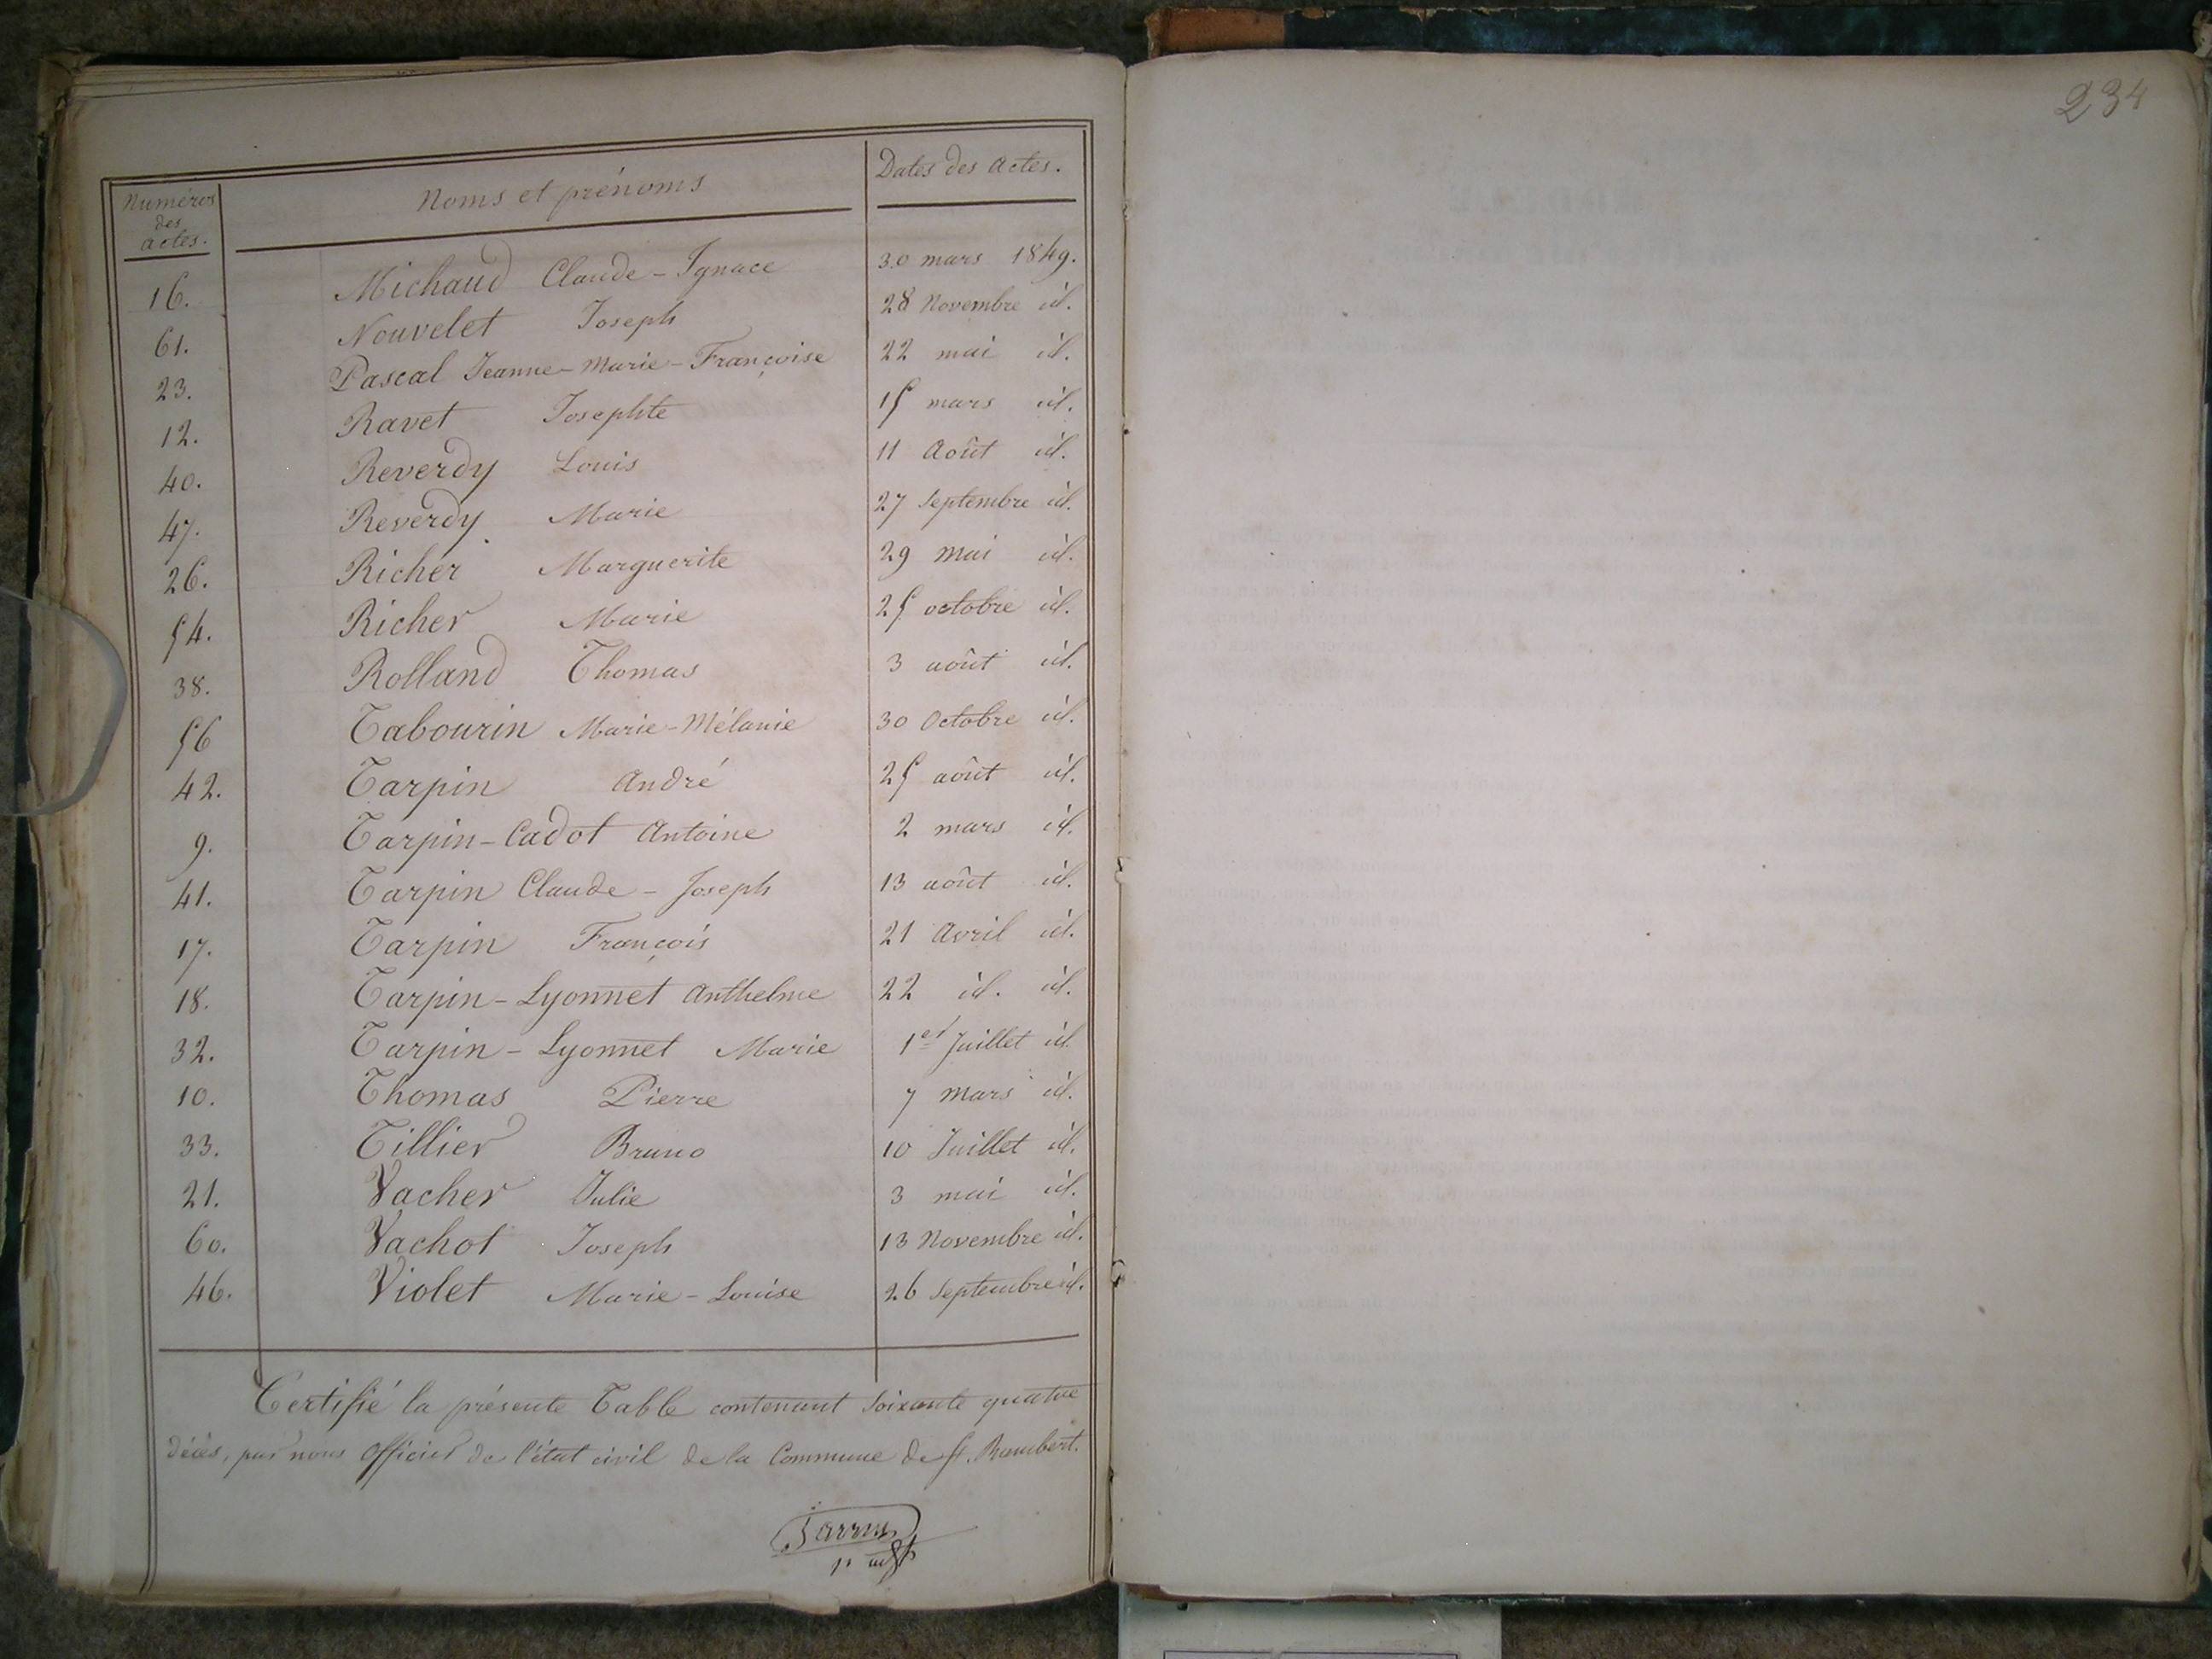 234
Numéros des actes. Noms et prénoms Dates des actes.
16. Michaud Claude-Ignace 30 mars 1849.
61. Nouvelet Joseph 28 Novembre id.
23. Pascal Jeanne-Marie-Françoise 22 mai id.
12. Ravet Josephte 15 mars id.
40. Reverdy Louis 11 Août id.
47. Reverdy Marie 27 Septembre id.
26. Richer Marguerite 29 mai id.
54. Richer Marie 25 octobre id.
38. Rolland Thomas 3 août id.
56 Tabourin Marie-Mélanie 30 Octobre id.
42. Tarpin André 25 août id.
9. Tarpin-Cadot Antoine 2 mars id.
41. Tarpin Claude-Joseph 13 août id.
17. Tarpin François 21 Avril id.
18. Tarpin-Lyonnet Anthelme 22 id. id.
32. Tarpin-Lyonnet Marie 1er Juillet id
10. Thomas Pierre 7 mars id.
33. Tillier Bruno 10 Juillet id.
21. Vacher Julie 3 mai id.
60. Vachot Joseph 13 Novembre id.
46. Violet Marie-Louise 26 Septembre id.
Certifié la présente Table contenant soixante quatre
décès, par nous Officier de l'état civil de la Commune de St. Rambert.